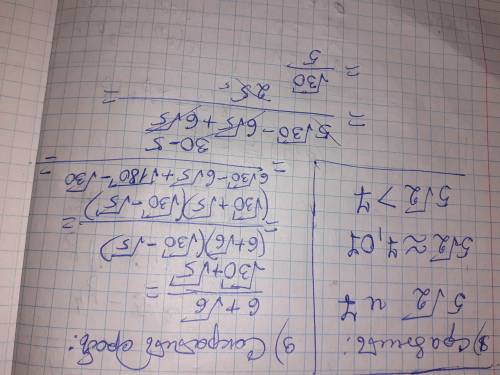 8) Сравнить:
5√2 и 7
5√2 ≈ 7,07
5√2 > 7
9) Сократить дробь:
6+√6
√30+√5 =
= (6+√6)(√30−√5)
(√30+√5)(√30−√5) =
= 6√30−6√5+√180−√30
30−5 =
= 5√30−6√5+6√5
25 =
= √30
5